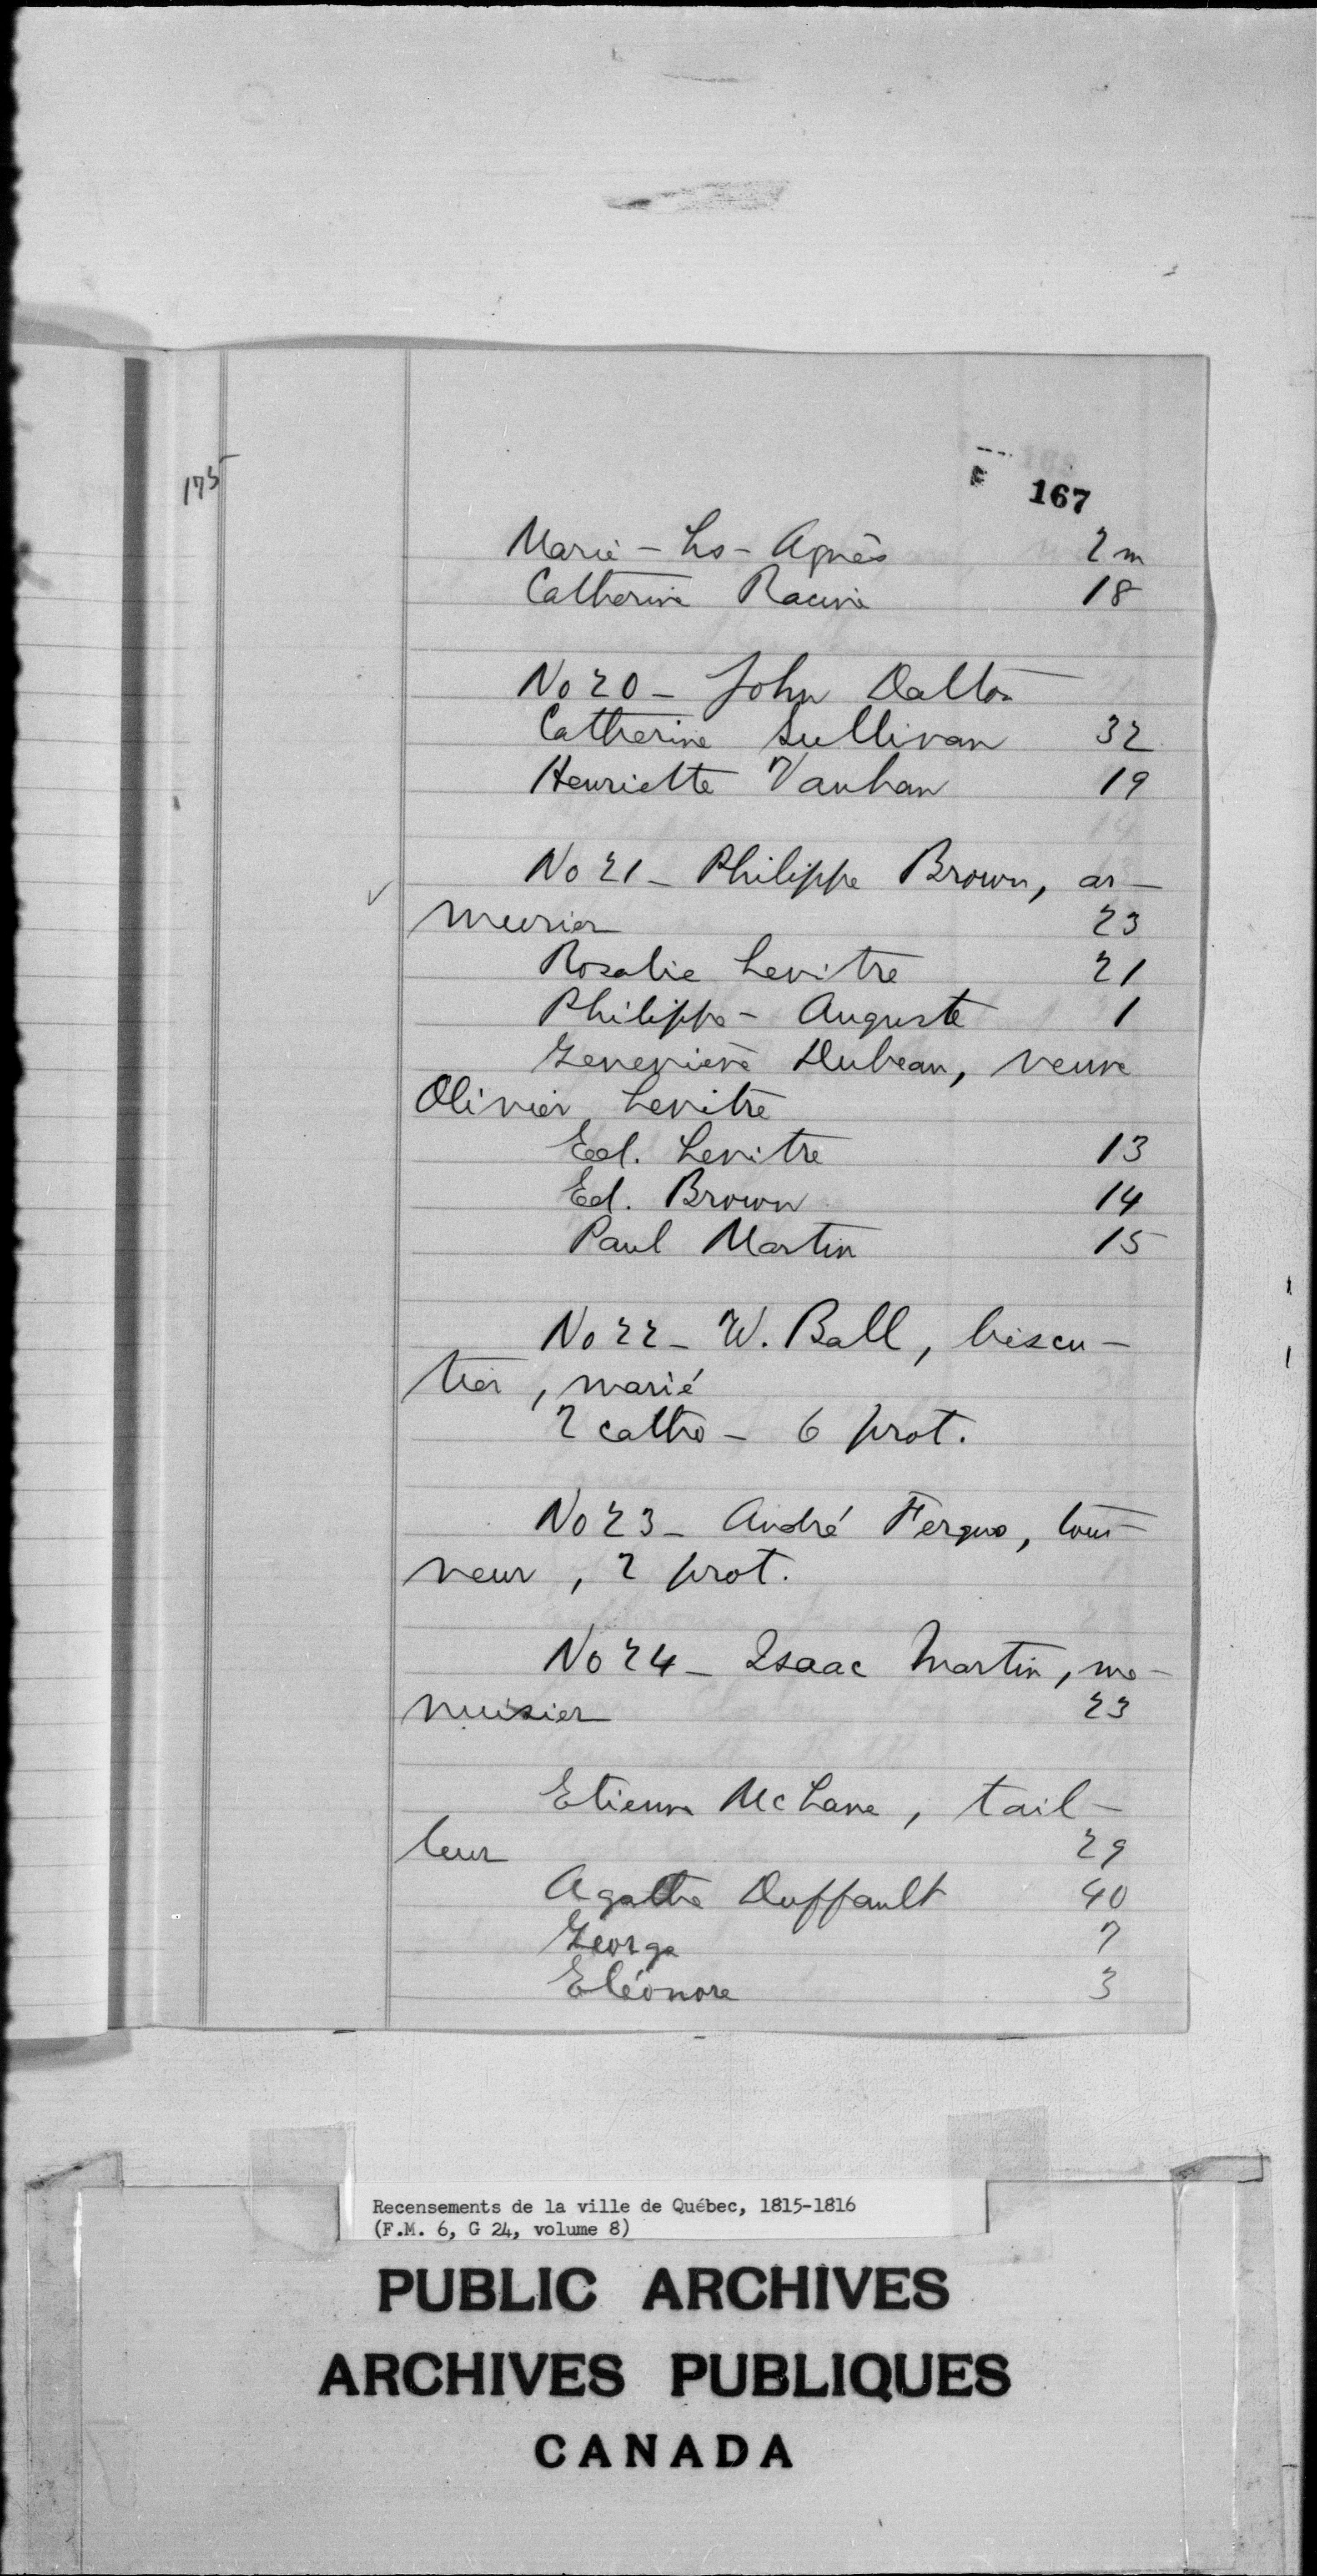 175
167
Marie - Ls - Agnès 2 m
Catherine Racine 18
No 20 - John Dalton
Catherine Sullivan 32
Henriette Vauhan 19
No 21 - Philippe Brown, ar-
murier 23
Rosalie Levitre 21
Philippe - Auguste 1
Geneviève Dubeau, veuve
Olivier Levitre
Ed. Levitre 13
Ed. Brown 14
Paul Martin 15
No 22 - W. Ball, biscu-
tier, marié
2 catho - 6 prot.
No 23 - André Fergus, tour-
neur, 2 prot.
No 24 - Isaac Martin, me-
nuisier 23
Etienne McLane, tail-
leur 29
Agathe Duffault 40
George 7
Eléonore 3
Recensements de la ville de Québec, 1815-1816
(F.M. 6, G 24, volume 8)
PUBLIC ARCHIVES
ARCHIVES PUBLIQUES
CANADA